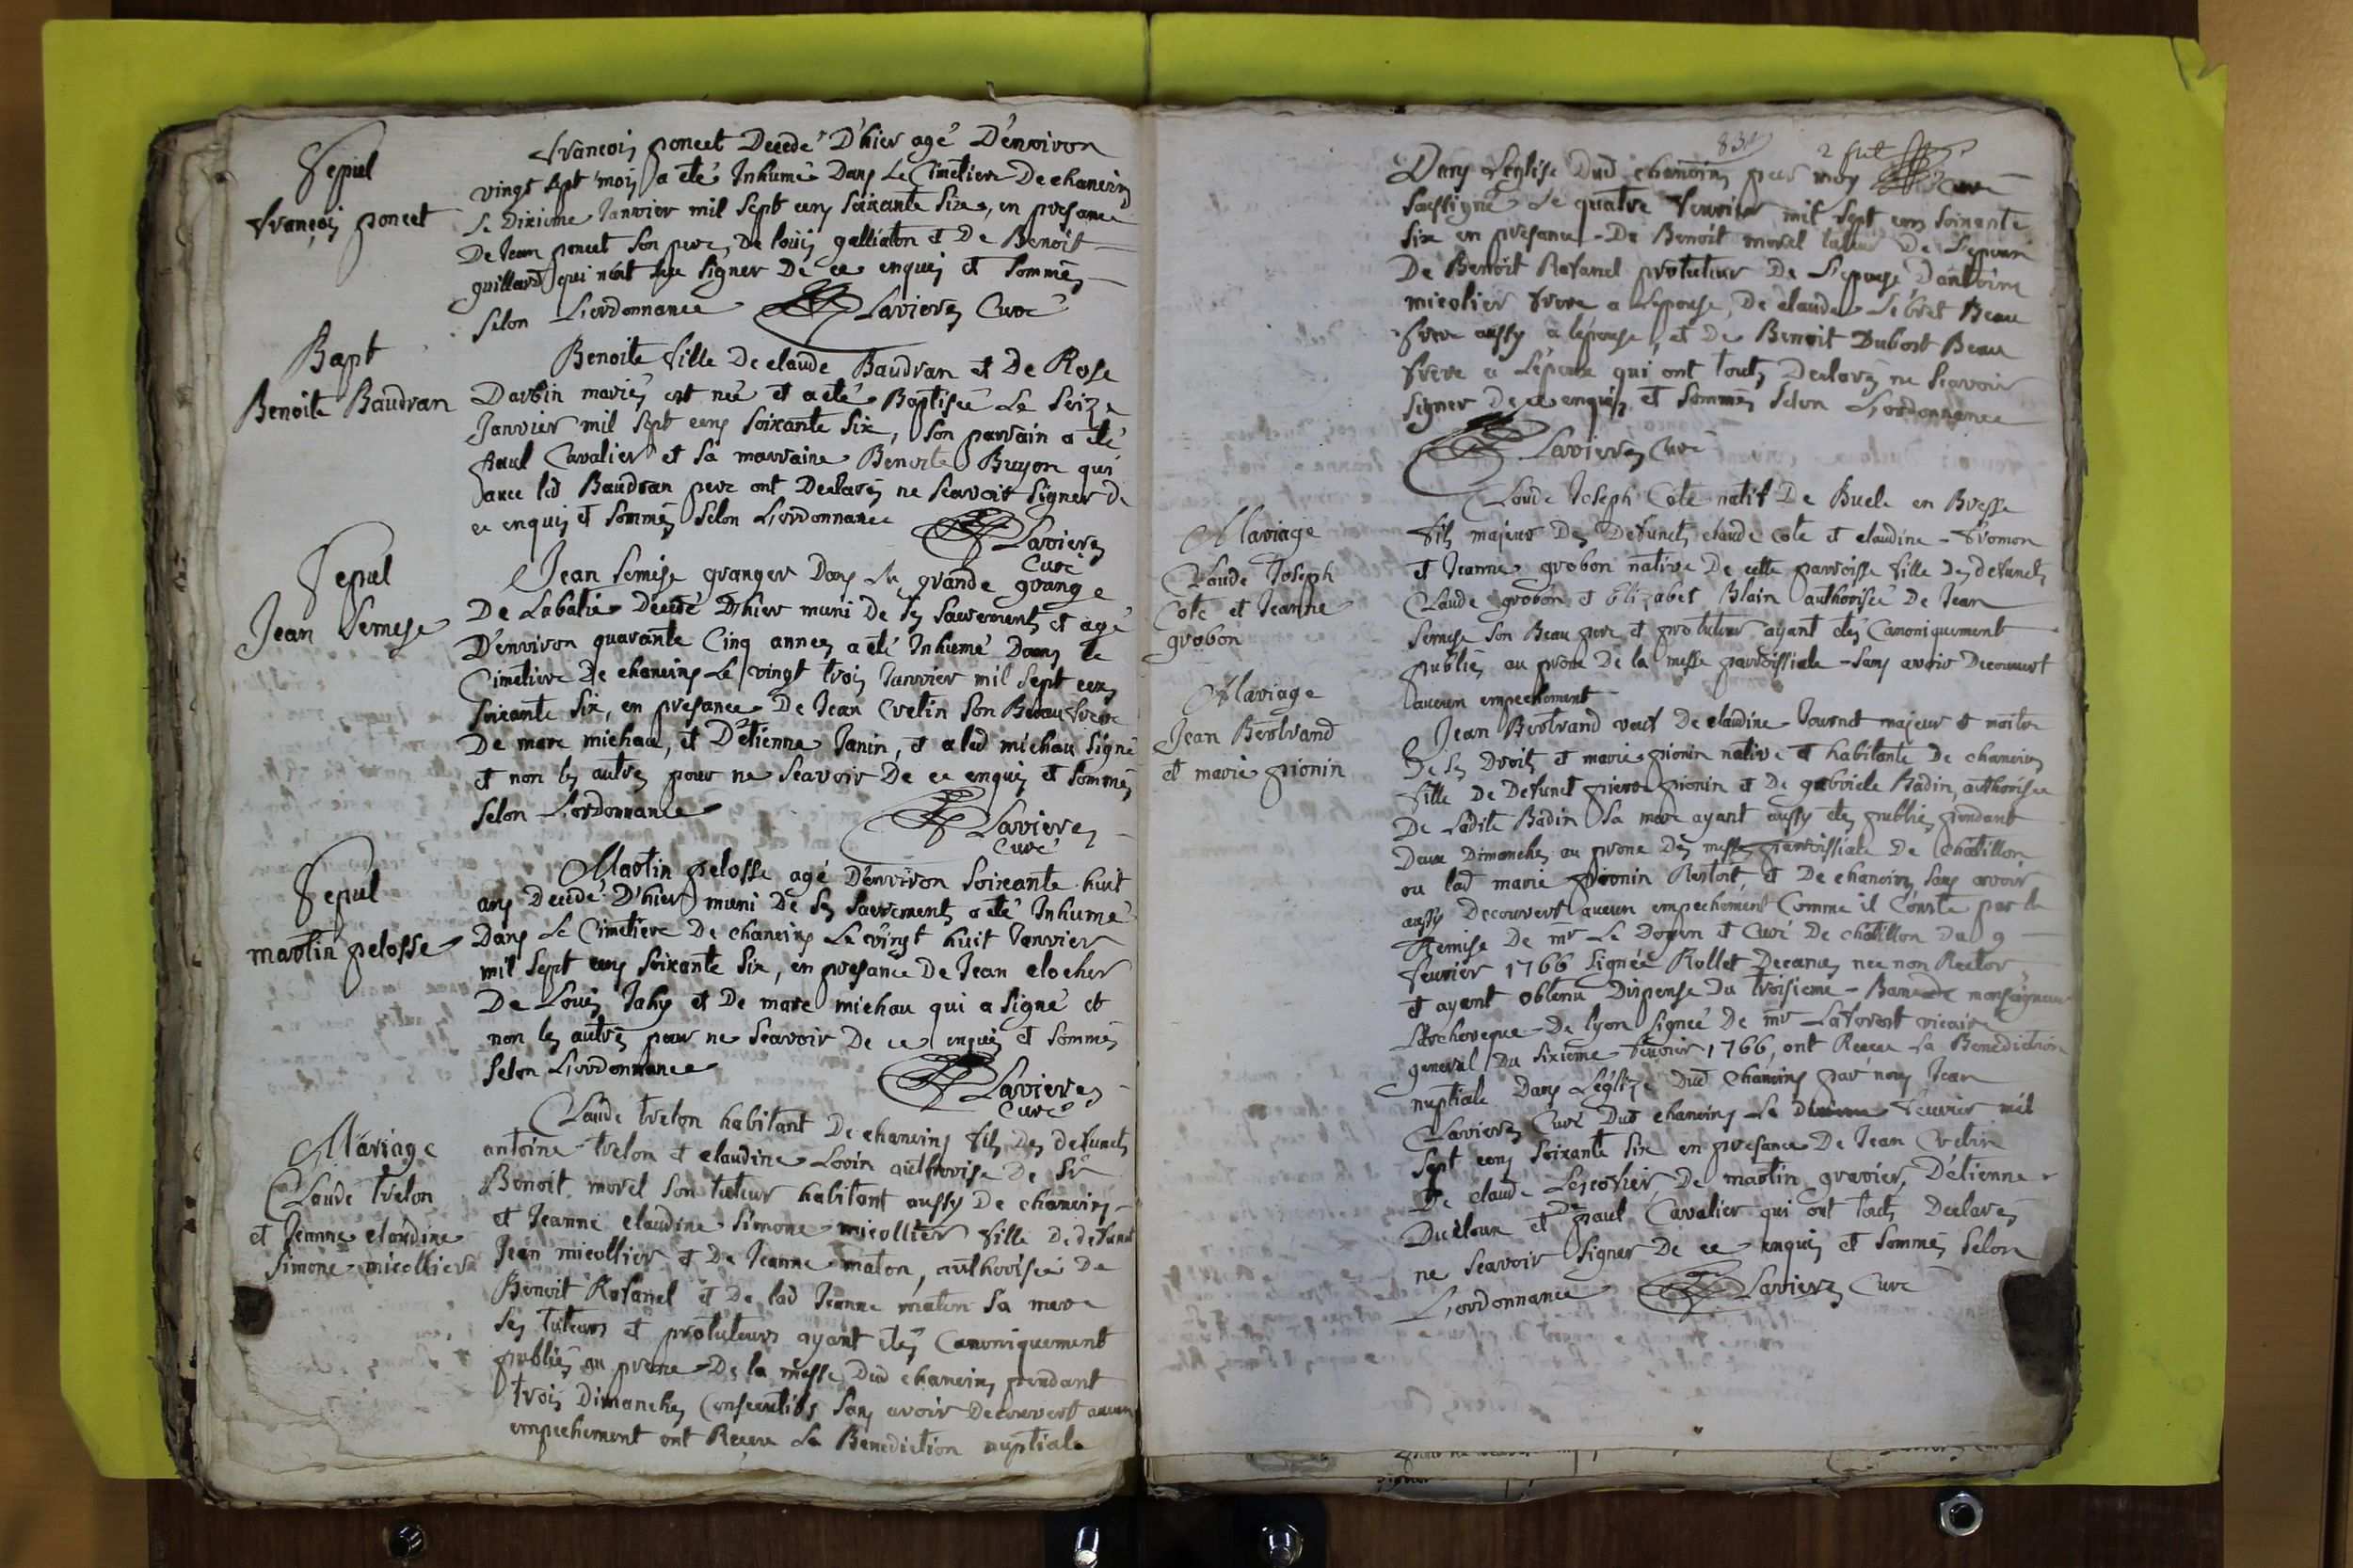 Sepul
françois poncet
françois poncet Decedé D'hier agé D'environ
vingt sept mois a eté Inhumé Dans Le Cimetiere De chaneins
Le Dixieme Janvier mil sept cens soixante six, en presance
De Jean poncet son pere, De loüis galliaton et De Benoit
guillard qui n'ont sceu signer De ce enquis et sommés
selon L'ordonnance Lavieres Curé
Bapt
Benoite Baudran
Benoite fille De claude Baudran et De Rose
Darbin mariés est née et a eté Baptisée Le seize
Janvier mil sept cens soixante six, son parrain a eté
paul Cavalier et sa marraine Benoite Buyon qui
avec led Baudran pere ont Declarés ne scavoir signer de
ce enquis et sommés selon L'ordonnance
Lavieres
Curé
Sepul
Jean Semese
Jean Semese granger Dans La grande grange
De Labatie Decedé D'hier muni De ses sacrements et agé
D'environ quarante Cinq années a eté Inhumé Dans le
Cimetiere De chaneins Le vingt trois Janvier mil sept cens
soixante six, en presance De Jean Cretin son Beaufrere
De marc michau, et D'étienne Janin, et a led michau signé
et non les autres pour ne scavoir De ce enquis et sommés
selon L'ordonnance Lavieres
Curé
Sepul
martin pelosse
Martin pelosse agé D'environ soixante huit
ans Decedé D'hier muni De ses sacrements a eté Inhumé
Dans Le Cimetiere De chaneins Le vingt huit Janvier
mil sept cens soixante six, en presance De Jean clocher
De Louis Jahy et De marc michau qui a signé et
non les autres pour ne scavoir De ce enquis et sommés
selon L'ordonnance Lavieres
Curé
Mariage
Claude trelon
et Jeanne claudine
simone micollier
Claude trelon habitant De chaneins fils Des defuncts
antoine trelon et claudine Lorin authorisé De sr
Benoit morel son tuteur habitant aussy De chaneins
et Jeanne claudine simone micollier fille De defunct
Jean micollier et De Jeanne maton, authorisée De
Benoit Rofanel et De lad Jeanne maton sa mere
ses tuteurs et protuteurs ayant étés Canoniquement
publiés au prone De la messe Dud chaneins pendant
trois Dimanches Consecutifs sans avoir Decouvert aucun
empechement ont Receu La Benediction nuptiale
Dans L'eglise Dud chaneins par moy curé
soussigné Le quatre fevrier mil sept cens soixante
six en presance De Benoit morel tuteur De L'epoux
De Benoit Rofanel protuteur De L'epouse, D'antoine
micolier frere a L'epouse, De claude Lebret Beau
frere aussy a l'epouse, et De Benoit Dubost Beau
frere a L'epoux qui ont touts Declarés ne scavoir
signer De ce enquis et sommés selon L'ordonnance
Lavieres Curé
Mariage
Claude Joseph
Cote et Jeanne
grobon
Claude Joseph Cote natif De Buele en Bresse
fils majeur Des Defuncts claude cote et claudine fromon
et Jeanne grobon native De cette parroisse fille des defuncts
Claude grobon et Elizabet Blain authorisée De Jean
Semese son Beau pere et protuteur ayant étés Canoniquement
publiés au prone De la messe parroissiale sans avoir Decouvert
aucun empechement
Mariage
Jean Bertrand
et marie pionin
Jean Bertrand veuf De claudine Journet majeur et maitre
De ses Droits et marie pionin native et habitante De chaneins
fille De Defunct pierre pionin et De gabriele Badin, authorisée
De Ladite Badin sa mere ayant aussy étés publiés pendant
Deux Dimanches au prone Des messes parroissiale De chatillon
ou lad marie pionin Restoit, et De chaneins sans avoir
aussy Decouvert aucun empechement Comme il Conste par la
Remise De mr Le Doyen et Curé De chatillon Du 9
fevrier 1766 signée Rollet Decanus nec non Rector,
et ayant obtenu Dispense Du troisieme Ban de monseigneur
L'archeveque De lyon signée De mr Laforest vicaire
general Du sixieme fevrier 1766, ont Receu La Benediction
nuptiale Dans L'eglize Dud chaneins par nous Jean
Lavieres Curé Dud chaneins Le Dixieme fevrier mil
sept cens soixante six en presance De Jean Cretin
De claude Lescoffier, De martin gravier, D'étienne
Ducloux et De paul Cavalier qui ont touts Declarés
ne scavoir signer De ce enquis et sommés selon
L'ordonnance Lavieres Curé